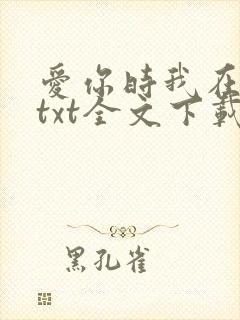 愛你時我在
txt全文下載
黑孔雀